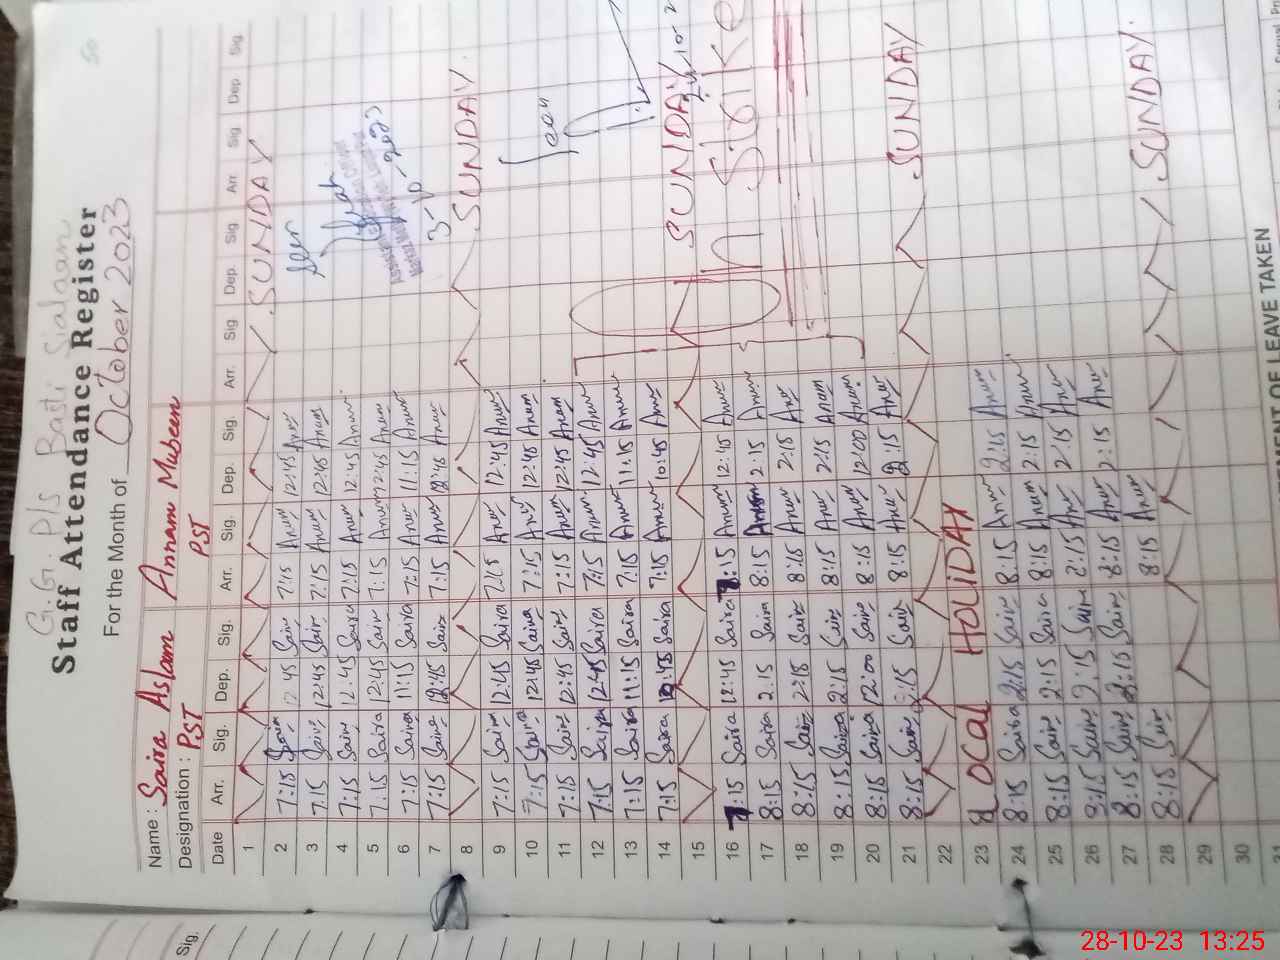 G.G. P/S Basti Sialaan
Staff Attendance Register
For the Month of October 2023
Name : Saira Aslam Annam Mubeen
Designation : PST PST
Date Arr. Sig. Dep. Sig. Arr. Sig. Dep. Sig. Arr. Sig Dep. Sig Arr Sig Dep Sig.
1 SUNDAY
2 7:15 Saira 12:45 Saira 7:15 Anum 12:45 Anum Seen
3 7:15 Saira 12:45 Saira 7:15 Anum 12:45 Anum
4 7:15 Saira 12:45 Saira 7:15 Anum 12:45 Anum
5 7:15 Saira 12:45 Saira 7:15 Anum 12:45 Anum
6 7:15 Saira 11:15 Saira 7:15 Anum 11:15 Anum
7 7:15 Saira 12:45 Saira 7:15 Anum 12:45 Anum 3-10-2023
8 SUNDAY.
9 7:15 Saira 12:45 Saira 7:15 Anum 12:45 Anum
10 7:15 Saira 12:45 Saira 7:15 Anum 12:45 Anum
11 7:15 Saira 12:45 Saira 7:15 Anum 12:45 Anum
12 7:15 Saira 12:45 Saira 7:15 Anum 12:45 Anum
13 7:15 Saira 11:15 Saira 7:15 Anum 11:15 Anum
14 7:15 Saira 10:45 Saira 7:15 Anum 10:45 Anum
15 SUNDAY
16 8:15 Saira 12:45 Saira 8:15 Anum 12:45 Anum On Strike
17 8:15 Saira 2:15 Saira 8:15 Anum 2:15 Anum
18 8:15 Saira 2:15 Saira 8:15 Anum 2:15 Anum
19 8:15 Saira 2:15 Saira 8:15 Anum 2:15 Anum
20 8:15 Saira 12:00 Saira 8:15 Anum 12:00 Anum
21 8:15 Saira 2:15 Saira 8:15 Anum 2:15 Anum
22 SUNDAY
23 LOCAL HOLIDAY
24 8:15 Saira 2:15 Saira 8:15 Anum 2:15 Anum
25 8:15 Saira 2:15 Saira 8:15 Anum 2:15 Anum
26 8:15 Saira 2:15 Saira 8:15 Anum 2:15 Anum
27 8:15 Saira 2:15 Saira 8:15 Anum 2:15 Anum
28 8:15 Saira 8:15 Anum
29 SUNDAY.
30
31
MENT OF LEAVE TAKEN
Sig.
28-10-23 13:25